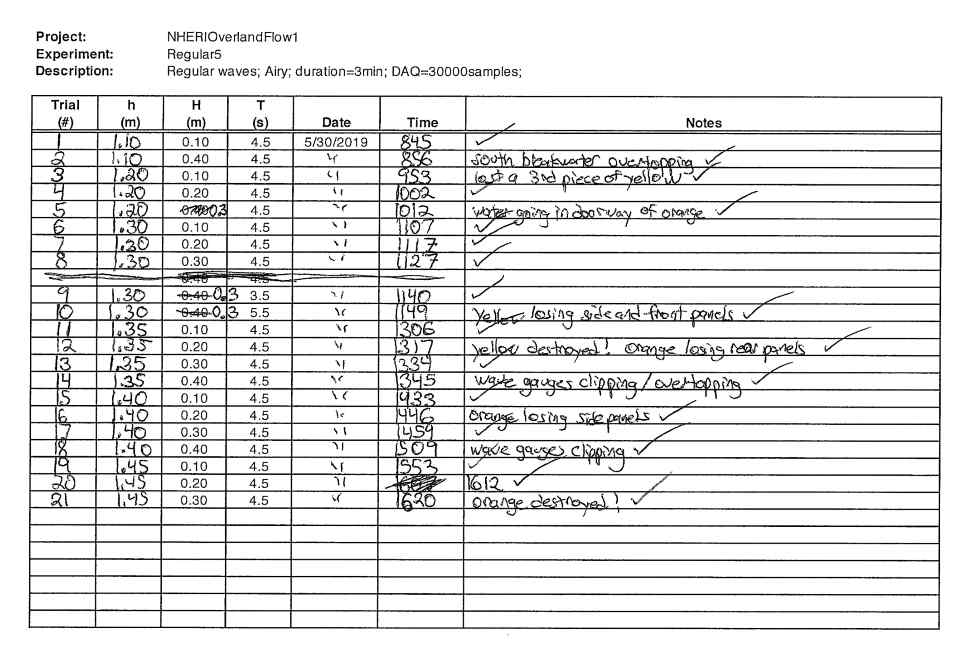 Project: NHERIOverlandFlow1
Experiment: Regular5
Description: Regular waves; Airy; duration=3min; DAQ=30000samples;
Trial (#) h (m) H (m) T (s) Date Time Notes
1 1.10 0.10 4.5 5/30/2019 845 ✓
2 1.10 0.40 4.5 " 856 south breakwater overtopping ✓
3 1.20 0.10 4.5 " 953 lost a 3rd piece of yellow ✓
4 1.20 0.20 4.5 " 1002 ✓
5 1.20 0.40 0.3 4.5 " 1012 water going in doorway of orange ✓
6 1.30 0.10 4.5 " 1107 ✓
7 1.30 0.20 4.5 " 1117 ✓
8 1.30 0.30 4.5 " 1127 ✓
0.40 4.5
9 1.30 0.40 0.3 3.5 " 1140 ✓
10 1.30 0.40 0.3 5.5 " 1149 Yellow losing side and front panels ✓
11 1.35 0.10 4.5 " 1306 ✓
12 1.35 0.20 4.5 " 1317 yellow destroyed! orange losing rear panels ✓
13 1.35 0.30 4.5 " 1334 ✓
14 1.35 0.40 4.5 " 1345 wave gauges clipping/overtopping ✓
15 1.40 0.10 4.5 " 1433 ✓
16 1.40 0.20 4.5 " 1446 orange losing side panels ✓
17 1.40 0.30 4.5 " 1459 ✓
18 1.40 0.40 4.5 " 1509 wave gauges clipping ✓
19 1.45 0.10 4.5 " 1553 ✓
20 1.45 0.20 4.5 " 1612 ✓
21 1.45 0.30 4.5 " 1620 orange destroyed! ✓